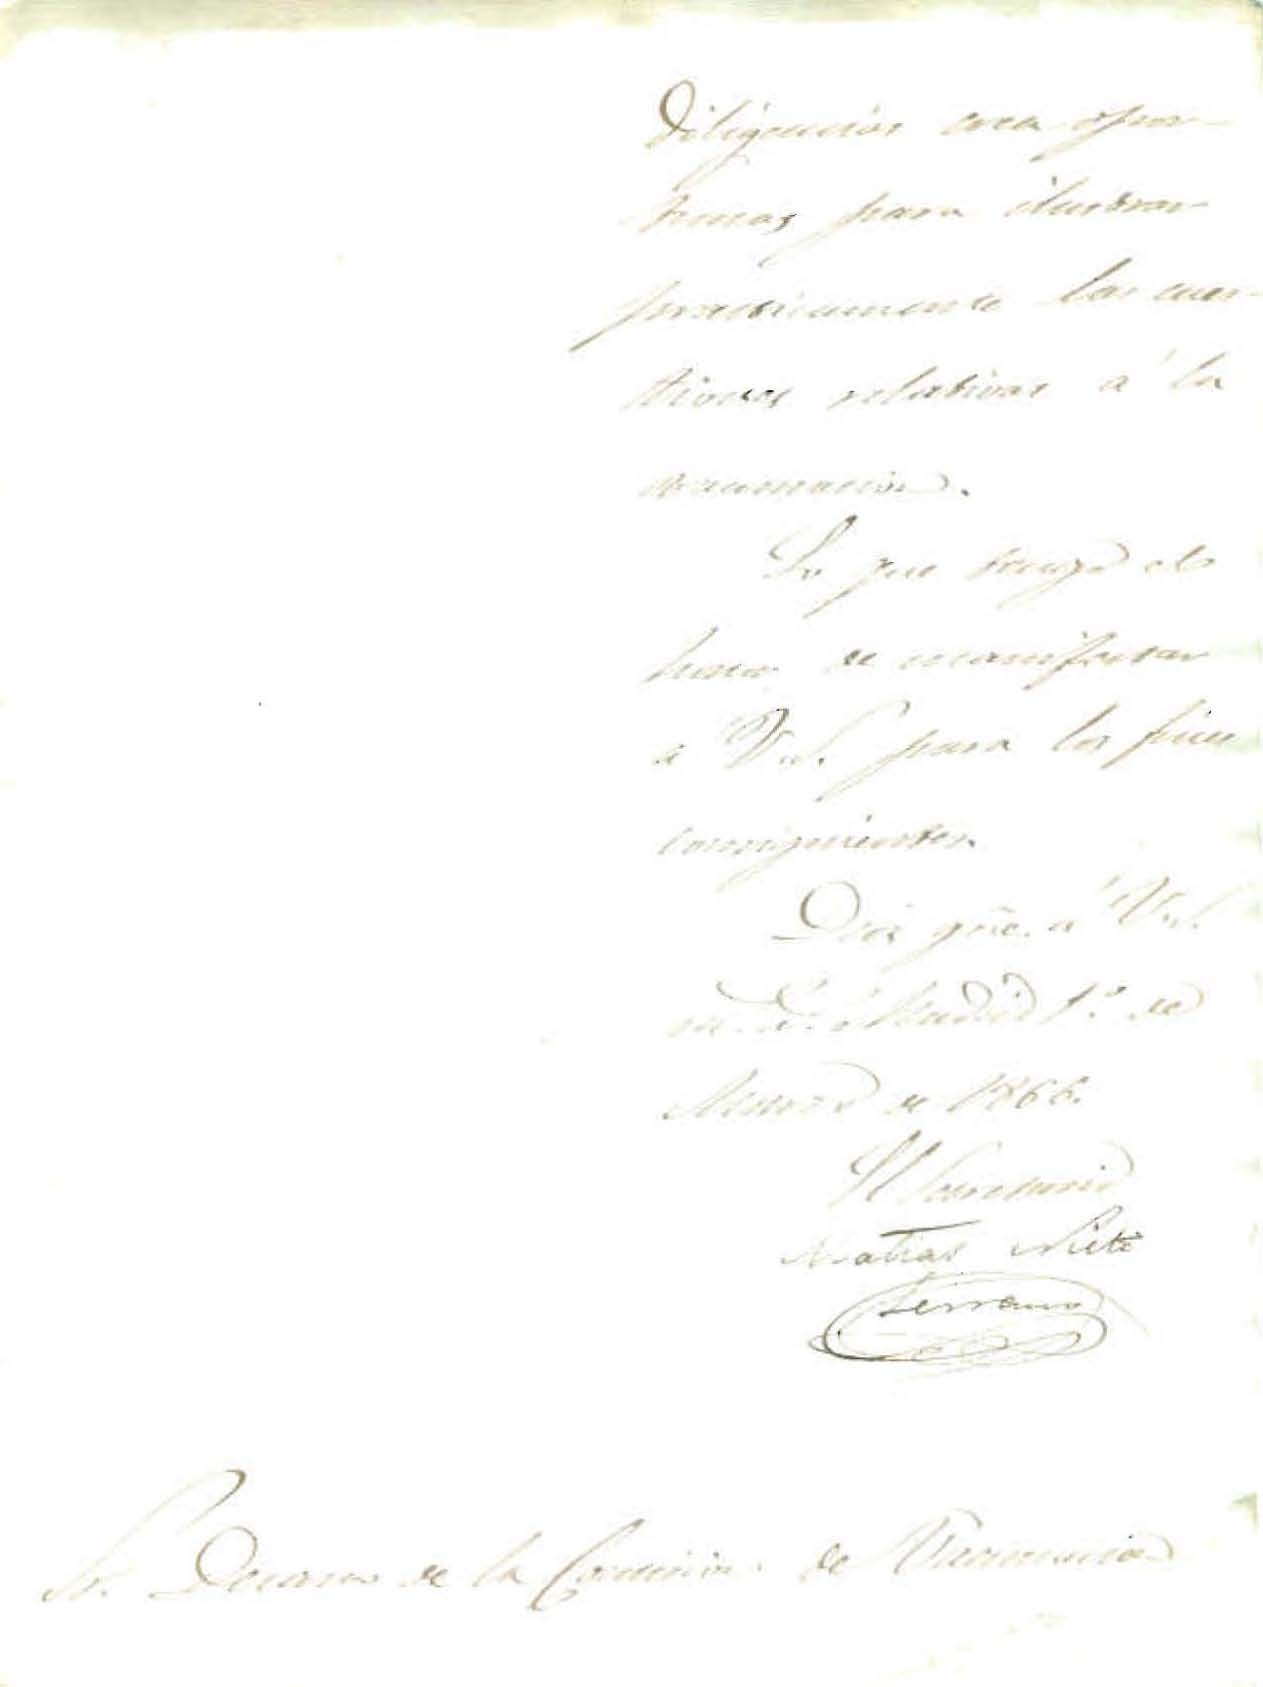 diligencias crea opor-
tunas para ilustrar
practicamente las cues-
tiones relativas á la
vacunacion.
Lo que tengo el
honor de manifestar
a V.S. para los fines
consiguientes.
Dios gũe. á V.S.
m. a. Madrid 1.º de
Marzo de 1866.
El Secretario
Matias Nieto
Serrano
Sr. Decano de la Comision de Vacunacion